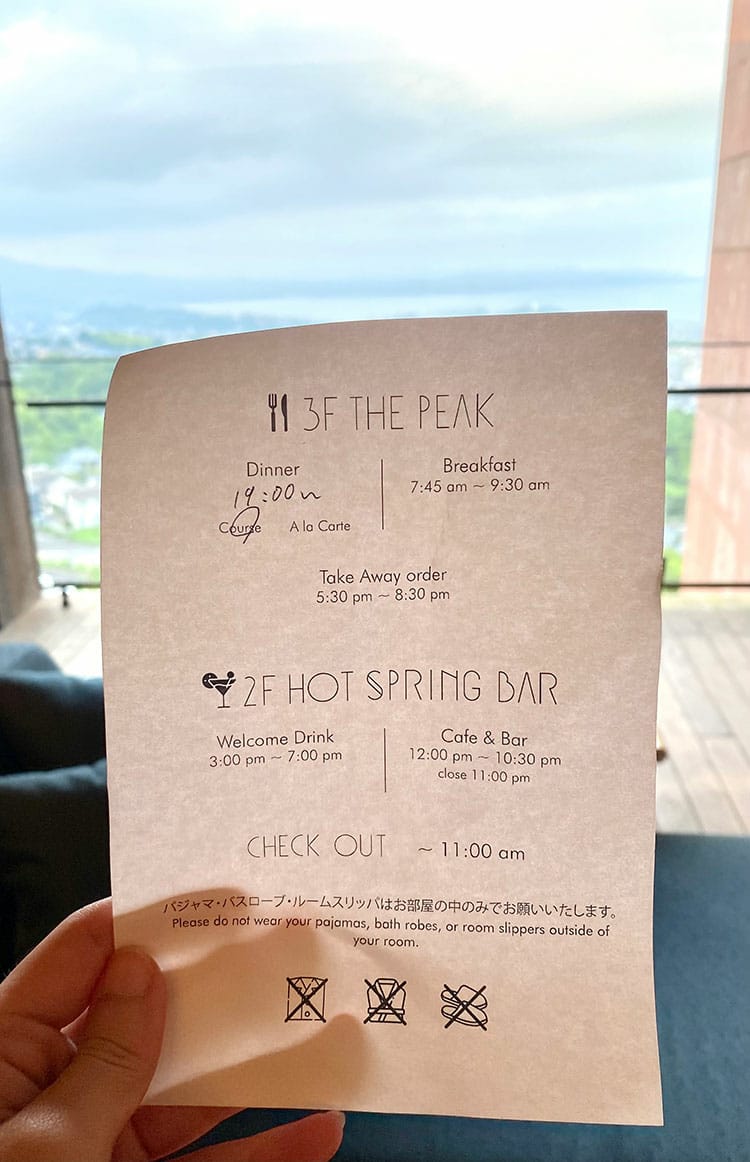 3F THE PEAK
Dinner
19:00~
Course A la Carte
Breakfast
7:45 am ~ 9:30 am
Take Away order
5:30 pm ~ 8:30 pm
2F HOT SPRING BAR
Welcome Drink
3:00 pm ~ 7:00 pm
Cafe & Bar
12:00 pm ~ 10:30 pm
close 11:00 pm
CHECK OUT ~ 11:00 am
パジャマ・バスローブ・ルームスリッパはお部屋の中のみでお願いいたします。
Please do not wear your pajamas, bath robes, or room slippers outside of
your room.